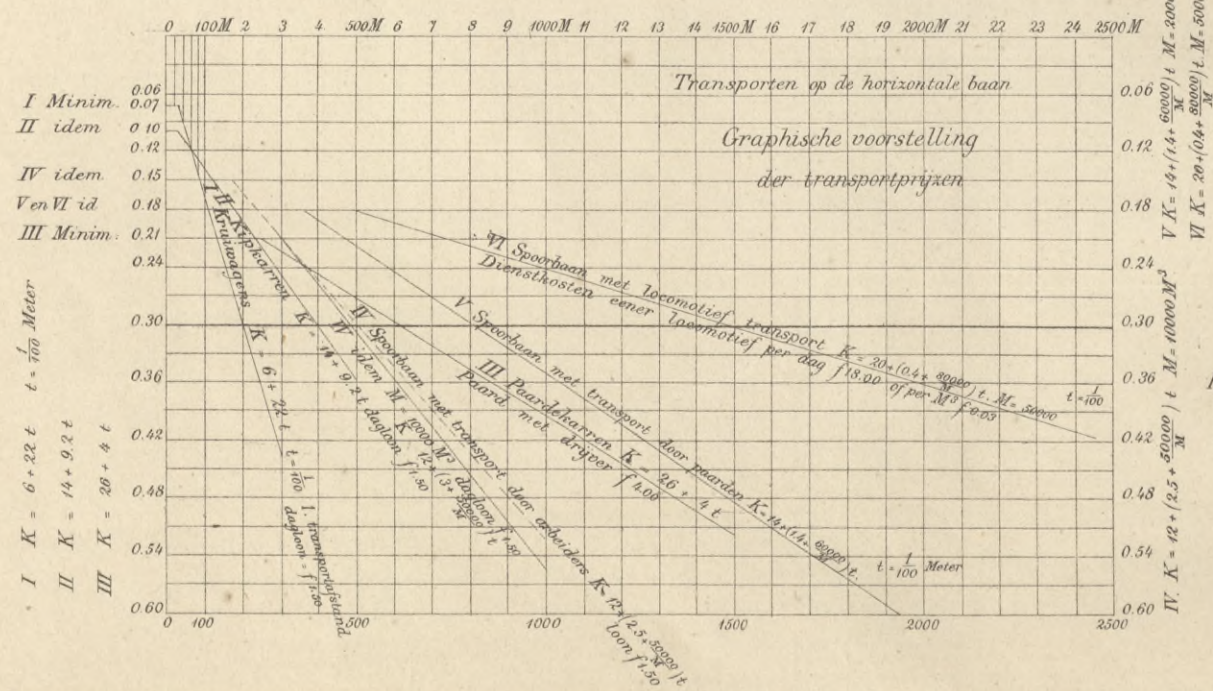 0 100M 2 3 4 500M 6 7 8 9 1000M 11 12 13 14 1500M 16 17 18 19 2000M 21 22 23 24 2500M
Transporten op de horizontale baan
Graphische voorstelling
der transportprijzen
I Minim. 0.06
0.07
II idem 0 10
0.12
IV idem 0.15
V en VI id 0.18
III Minim. 0.21
0.24
0.30
0.36
0.42
0.48
0.54
0.60
0.06
0.12
0.18
0.24
0.30
0.36
0.42
0.48
0.54
0.60
0 100 500 1000 1500 2000 2500
I K = 6 + 22 t t = 1/100 Meter
II K = 14 + 9.2 t
III K = 26 + 4 t
I Kruiwagens K = 6 + 22 t t = 1/100 1. transportafstand
dagloon = f 1.50
II Kipkarren K = 14 + 9.2 t dagloon f 1.50
IV idem M = 10000 M³ dagloon f 1.50
K = 12 + (3 + 50000/M) t
IV Spoorbaan met transport door arbeiders K = 12 + (2.5 + 50000/M) t
loon f 1.50
III Paardekarren K = 26 + 4 t
Paard met drijver f 4.00
V Spoorbaan met transport door paarden K = 14 + (1.4 + 60000/M) t.
t = 1/100 Meter
VI Spoorbaan met locomotief transport K = 20 + (0.4 + 80000/M) t. M = 50000
Dienstkosten eener locomotief per dag f 18.00 of per M³ f 0.03
t = 1/100
IV. K = 12 + (2.5 + 50000/M) t M = 10000 M³
V K = 14 + (1.4 + 60000/M) t M = 200
VI K = 20 + (0.4 + 80000/M) t. M = 500